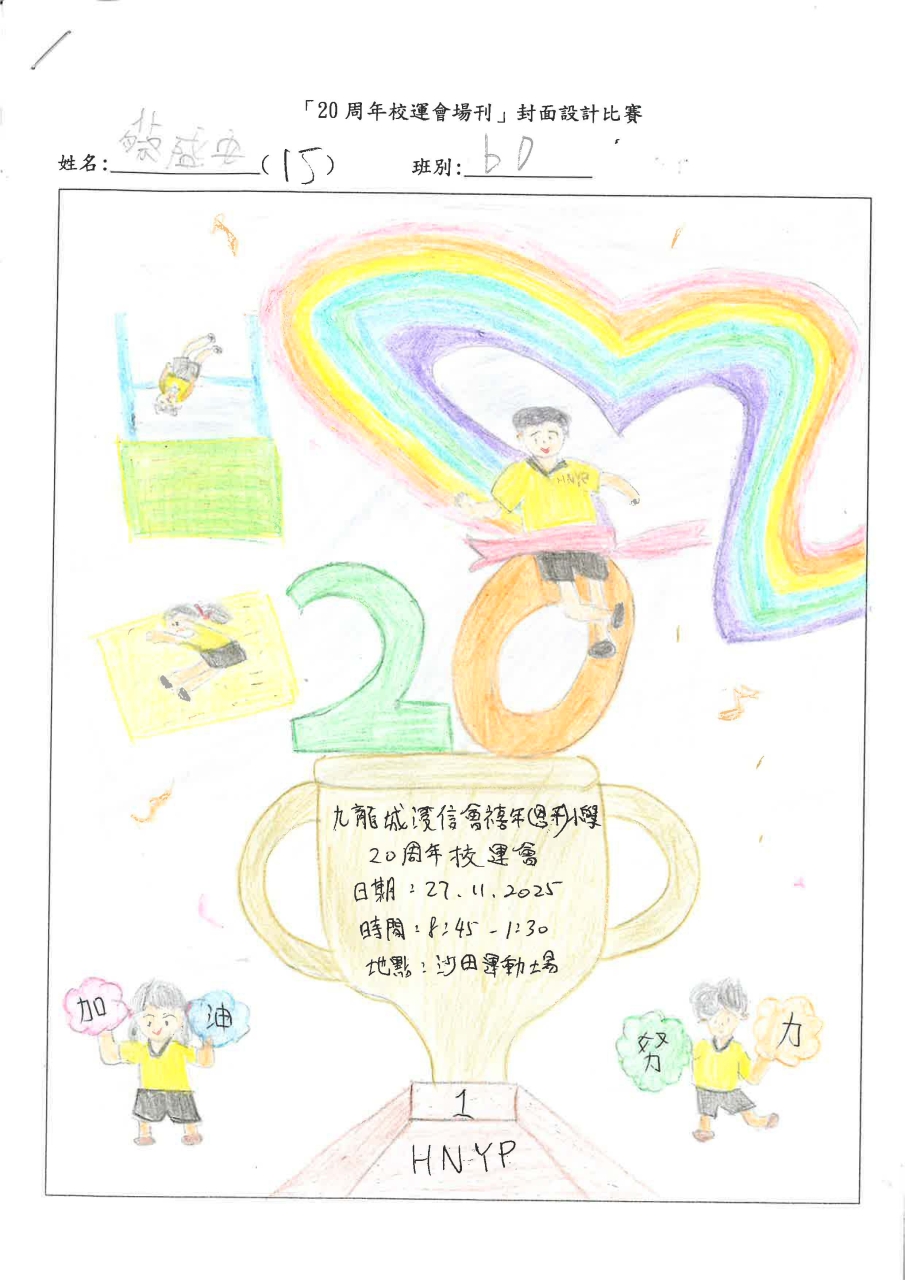 「20 周年校運會場刊」封面設計比賽
姓名:蔡盛安(15) 班別:6D
HNYP
20
九龍城浸信會禧年(恩平)小學
20周年校運會
日期：27.11.2025
時間：8:45 - 1:30
地點：沙田運動場
加 油
努 力
1
HNYP